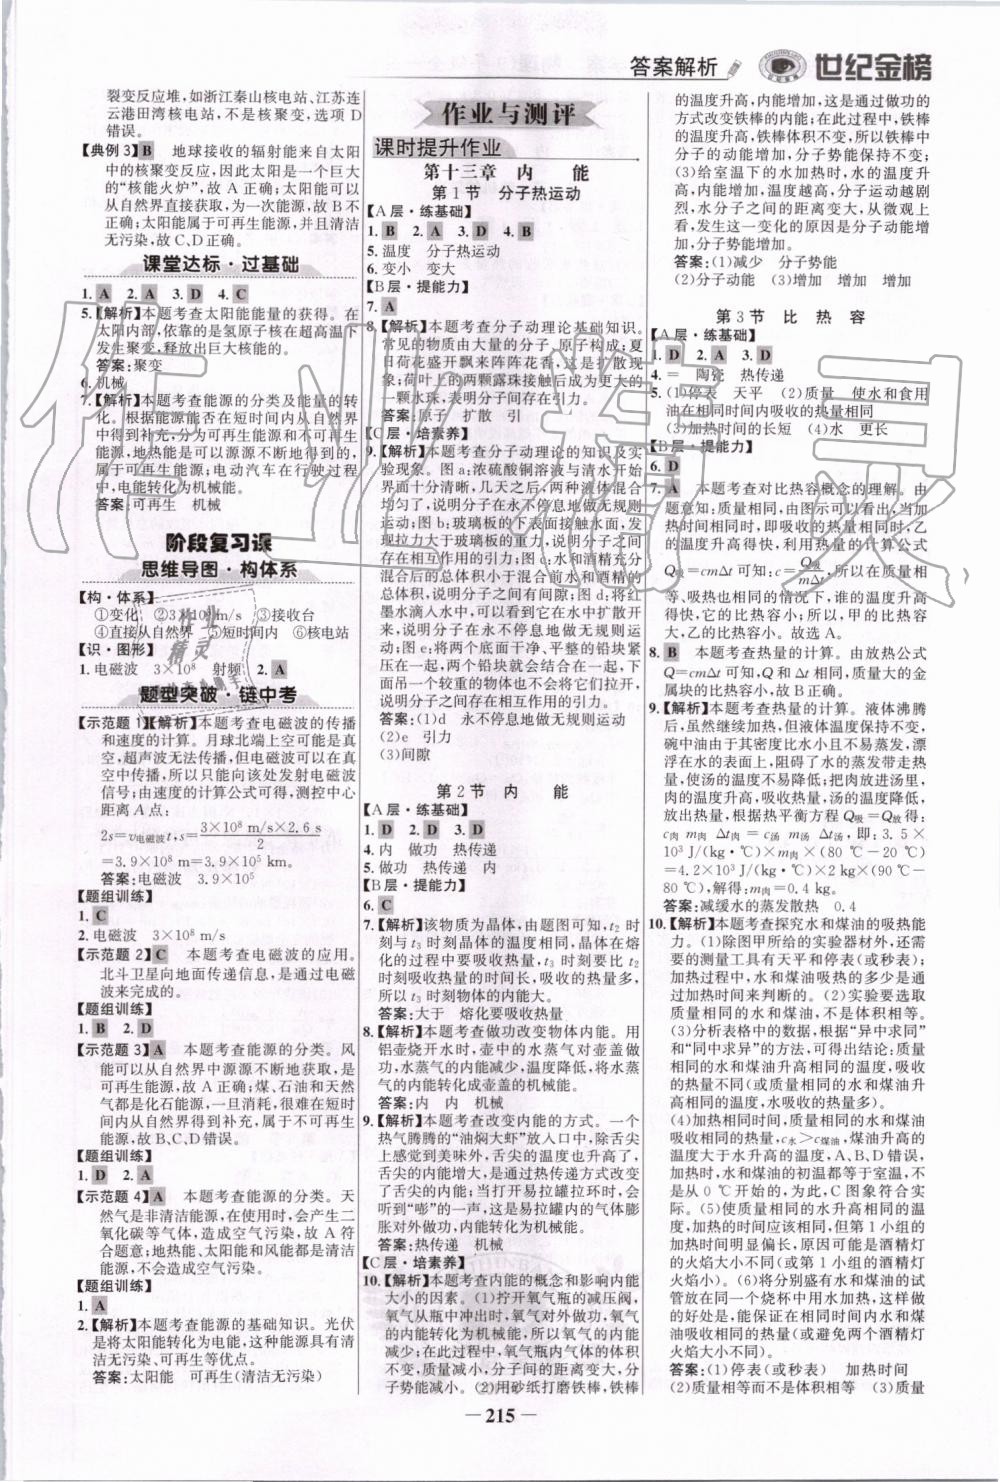 答案解析
世纪金榜
裂变反应堆,如浙江秦山核电站、江苏连
云港田湾核电站,不是核聚变,选项 D
错误。
【典例 3】B　地球接收的辐射能来自太阳
中的核聚变,因此太阳是一个巨大
的“核能火炉”,故 A 正确;太阳能可以
从自然界直接获取,为一次能源,故 B 不
正确;太阳能属于可再生能源,并且清洁
无污染,故 C、D 正确。
课堂达标·过基础
1. A　2. A　3. D　4. C
5.【解析】本题考查太阳能能量的获得。在
太阳内部,依靠的是氢原子核在超高温下
发生聚变,释放出巨大核能的。
答案:聚变
6. 机械
7.【解析】本题考查能源的分类及能量的转
化。根据能源能否在短时间内从自然界
中得到补充,分为可再生能源和不可再生
能源;地热能是可以源源不断地得到的,
属于可再生能源;电动汽车在行驶过程
中,电能转化为机械能。
答案:可再生　机械
阶段复习课
思维导图·构体系
【构·体系】
①变化　②3×10⁸ m/s　③接收台
④直接从自然界　⑤短时间内　⑥核电站
【识·图形】
1. 电磁波　3×10⁸　射频　2. A
题型突破·链中考
【示范题 1】【解析】本题考查电磁波的传播
和速度的计算。月球北端上空可能是真
空,超声波无法传播,但电磁波可以在真
空中传播,所以只能向该处发射电磁波
信号;由速度的计算公式可得,测控中心
距离 A 点:
2s=v电磁波t,s=3×10⁸ m/s×2.6 s/2
=3.9×10⁸ m=3.9×10⁵ km。
答案:电磁波　3.9×10⁵
【题组训练】
1. C
2. 电磁波　3×10⁸ m/s
【示范题 2】C　本题考查电磁波的应用。
北斗卫星向地面传递信息,是通过电磁
波来完成的。
【题组训练】
1. B　2. D
【示范题 3】A　本题考查能源的分类。风
能可以从自然界中源源不断地获得,故
A 正确;煤、石油和天然
气都是化石能源,一旦消耗,很难在短时
间内从自然界得到补充,属于不可再生能
源,故 B、C、D 错误。
【题组训练】
1. D　2. A
【示范题 4】A　本题考查能源的分类。天
然气是非清洁能源,使用时,会产生二
氧化碳等气体,造成空气污染,故 A 符
合题意;地热能、太阳能和风能都是清洁
能源,不会造成空气污染。
【题组训练】
1. A
2.【解析】本题考查能源的知识。光伏
是将太阳能转化为电能,这种能源具有清
洁无污染、可再生等优点。
答案:太阳能　可再生(清洁无污染)
作业与测评
课时提升作业
第十三章　内　能
第 1 节　分子热运动
【A 层·练基础】
1. B　2. A　3. D　4. B
5. 温度　分子热运动
6. 变小　变大
【B 层·提能力】
7. A
8.【解析】本题考查分子动理论基础知识。
常见的物质由大量的分子、原子构成;夏
日荷花盛开飘来阵阵花香,这是扩散现
象;荷叶上的两颗露珠接触后成为较大的
一颗水珠,表明分子间存在引力。
答案:原子　扩散　引
【C 层·培素养】
9.【解析】本题考查分子动理论的知识及实
验现象。图 a:浓硫酸铜溶液与清水开始
界面十分清晰,几天之后,两种液体混合
均匀了,说明分子在永不停息地做无规则
运动;图 b:玻璃板的下表面接触水面,发
现拉力大于玻璃板的重力,说明分子之间
存在相互作用的引力;图 c:水和酒精充分
混合后的总体积小于混合前水和酒精的
总体积,说明分子之间有间隙;图 d:将红
墨水滴入水中,可以看到它在水中扩散开
来,说明分子在永不停息地做无规则运
动;图 e:两个表面干净、平整的铅块紧压
在一起,两个铅块就会结合在一起,下面
吊一个较重的物体也不会将它们拉开,
说明分子之间存在相互作用的引力。
答案:(1)d　永不停息地做无规则运动
(2)e　引力
(3)间隙
第 2 节　内　能
【A 层·练基础】
1. D　2. D　3. D
4. 内　做功　热传递
5. 做功　热传递　内
【B 层·提能力】
6. C
7.【解析】该物质为晶体,由题图可知,t₂ 时
刻与 t₃ 时刻晶体的温度相同,晶体在熔
化的过程中要吸收热量,t₃ 时刻要比 t₂
时刻吸收热量的时间长,吸收的热量多,
所以 t₃ 时刻物体的内能大。
答案:大于　熔化要吸收热量
8.【解析】本题考查做功改变物体内能。用
铝壶烧开水时,壶中的水蒸气对壶盖做
功,水蒸气的内能减少,温度降低,将水蒸
气的内能转化成壶盖的机械能。
答案:内　内　机械
9.【解析】本题考查改变内能的方式。一个
热气腾腾的“油焖大虾”放入口中,除舌尖
上感觉到美味外,舌尖的温度升高了,
舌尖的内能增大,这是通过热传递方式改变
了舌尖的内能;当打开易拉罐拉环时,会
听到“嘭”的一声,这是易拉罐内的气体
膨胀对外做功,使内能转化成机械能。
答案:热传递　机械
【C 层·培素养】
10.【解析】本题考查内能的概念和影响内能
大小的因素。(1)拧开氧气瓶的减压阀,
氧气从瓶中冲出时,氧气对外做功,氧气
的内能转化为机械能,所以氧气的内能
减少;在此过程中,氧气瓶内气体的体积
不变,质量减小,分子间的距离变大,分子
势能减少。(2)用砂纸打磨铁棒,铁棒
的温度升高,内能增加,这是通过做功的
方式改变铁棒的内能;在此过程中,铁棒
的温度升高,铁棒体积不变,所以铁棒
分子的动能增加,分子势能保持不变;
(3)给室温下的水加热时,水的温度升
高,内能增加,温度越高,分子运动越剧
烈,水分子之间的距离变大,从微观上
看,发生这一变化的原因是分子动能增
加,分子势能增加。
答案:(1)减少　分子势能
(2)分子动能　(3)增加　增加　增加
第 3 节　比　热　容
【A 层·练基础】
1. D　2. A　3. D
4. =　陶瓷　热传递
5. (1)停表　天平　(2)质量　使水和食用
油在相同时间内吸收的热量相同
(3)加热时间的长短　(4)水　更长
【B 层·提能力】
6. D
7. A　本题考查对比热容概念的理解。由
题意知:质量相同,由图示可以看出,当加
热时间相同时,即吸收的热量相同时,乙
的温度升高得快,利用热量的计算公式
Q吸=cmΔt 可知:c=Q吸/mΔt,在质量相
等、吸热也相等的情况下,谁的温度升
高得快,谁的比热容就小;所以,甲的比热容大,
乙的比热容小。故选 A。
8. B　本题考查热量的计算。由放热公式
Q=cmΔt 可知,Q 和 Δt 相同,质量大的金
属块的比热容小,故选 B。
9.【解析】本题考查热量的计算。液体沸腾
后,虽然继续加热,但液体温度保持不变,
碗中油由于其密度比水小且不易蒸发,漂
浮在水的表面上,阻碍了水的蒸发带走热
量,使汤的温度不易降低;把肉放进汤里,
肉的温度升高,吸收热量,汤的温度降低,
放出热量,根据热平衡方程 Q吸=Q放得:
c肉 m肉 Δt肉 = c汤 m汤 Δt汤,即:3.5×
10³ J/(kg·℃)×m肉×(80 ℃-20 ℃)
=4.2×10³ J/(kg·℃)×2 kg×(90 ℃-
80 ℃),解得:m肉=0.4 kg。
答案:减缓水的蒸发散热　0.4
10.【解析】本题考查探究水和煤油的吸热能
力。(1)除图甲所给的实验器材外,还需
要的测量工具有天平和停表(或秒表);
加热过程中,水和煤油吸热的多少是通
过加热时间来判断的。(2)实验要选取
质量相同的水和煤油,不是体积相等。
(3)分析表格中的数据,根据“异中求同”
和“同中求异”的方法,可得出结论:质量
相同的水和煤油温度升高相同,吸收的热
量不同(或质量相同的水和煤油升高
相同的温度,水吸收的热量多)。
(4)加热相同时间,质量相同的水和煤油
吸收相同的热量,c水>c煤油,煤油升高的
温度大于水升高的温度,A、B、D 错误,
加热时,水和煤油的初温都等于室温,不
是从 0 ℃ 开始的,为此,C 图象符合实
际。(5)使质量相同的水升高相同的温
度,加热的时间应该相同,但第 1 小组的
加热时间明显偏长,原因可能是酒精灯
火焰小(或第 1 小组的酒精灯
火焰小)。(6)将分别盛有水和煤油的试
管放在同一个烧杯中用水加热,这样做
的好处是,能保证在相同时间内水和煤
油吸收相同的热量(或避免两个酒精灯
火焰大小不一样)。
答案:(1)停表(或秒表)　加热时间
(2)质量相等而不是体积相等　(3)质量
— 215 —